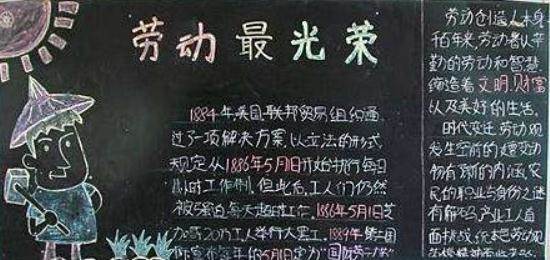 劳动最光荣
1884年美国联邦贸易组织通
过了一项解决方案,以立法的形式
规定从1886年5月1日开始执行每日
八小时工作制,但此后,工人们仍然
被强迫每天超时工作。1886年5月1日芝
加哥20万工人举行大罢工。1889年第二国
宣布每年的5月1日定为“国际劳
劳动创造人本身
千百年来,劳动者以辛
勤的劳动和智慧
缔造着文明、财富
以及美好的生活。
时代变迁,劳动观
发生空前的嬗变动
物有新的内涵,农
民的职业与身份之谜
有解吗?产业工人直
面挑战